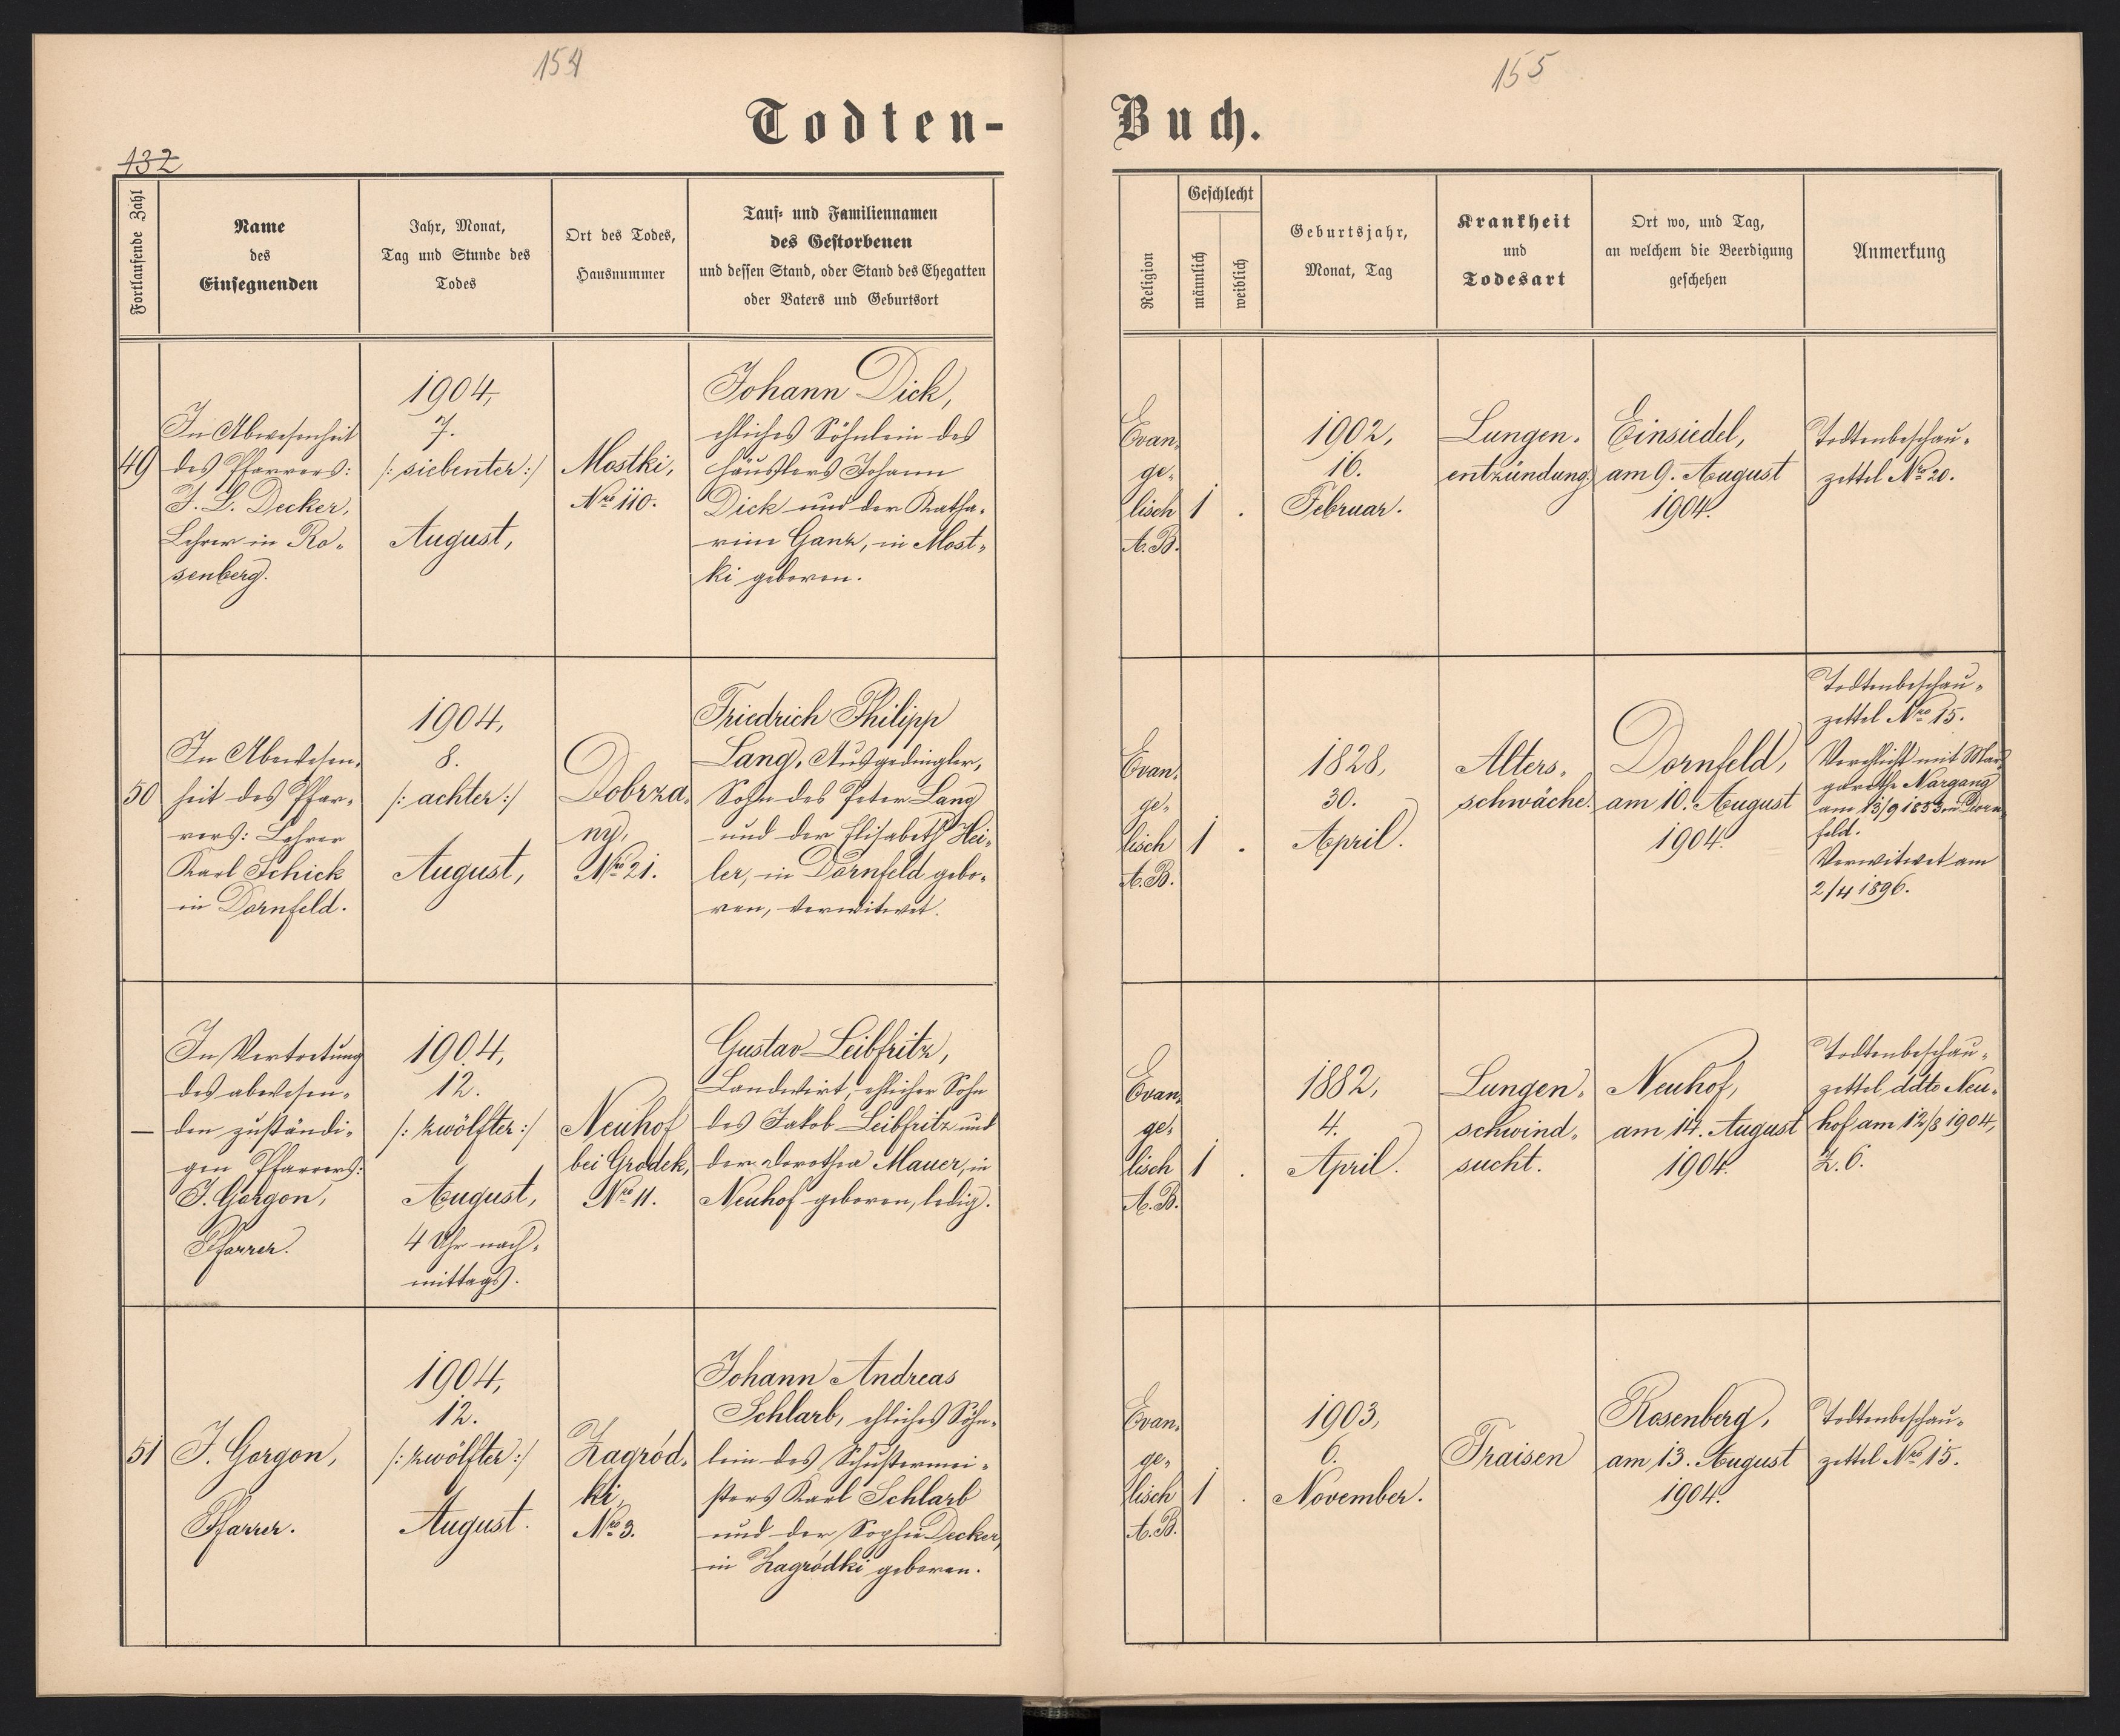 154
155
Todten-
Buch.
132
Fortlaufende Zahl
Name
des
Einsegnenden
Jahr, Monat,
Tag und Stunde des
Todes
Ort des Todes,
Hausnummer
Tauf- und Familiennamen
des Gestorbenen
und dessen Stand, oder Stand des Ehegatten
oder Vaters und Geburtsort
Religion
Geschlecht
männlich
weiblich
Geburtsjahr,
Monat, Tag
Krankheit
und
Todesart
Ort wo, und Tag,
an welchem die Beerdigung
geschehen
Anmerkung
49
In Abwesenheit
des Pfarrers:
J. L. Decker,
Lehrer in Ro-
senberg.
1904,
7.
/: siebenter :/
August,
Mostki,
Nro 110.
Johann Dick,
ehliches Söhnlein des
Häuslers Johann
Dick und der Katha-
rine Ganz, in Most-
ki geboren.
Evan-
ge-
lisch
A. B.
1 .
1902,
16.
Februar.
Lungen-
entzündung.
Einsiedel,
am 9. August
1904.
Todtenbeschau-
zettel Nro 20.
50
In Abwesen-
heit des Pfar-
rers: Lehrer
Karl Schick
in Dornfeld.
1904,
8.
/: achter :/
August,
Dobrza-
ny,
Nro 21.
Friedrich Philipp
Lang, Ausgedingler,
Sohn des Peter Lang
und der Elisabeth Hei-
ler, in Dornfeld gebo-
ren, verwitwet.
Evan-
ge-
lisch
A. B.
1 .
1828,
30.
April.
Alters-
schwäche.
Dornfeld,
am 10. August
1904.
Todtenbeschau-
zettel Nro 15.
Verehlicht mit Mar-
garethe Nargang
am 13/9 1853 in Dorn-
feld.
Verwitwet am
2/4 1896.
—
In Vertretung
des abwesen-
den zuständi-
gen Pfarrers:
J. Gorgon,
Pfarrer.
1904,
12.
/: zwölfter :/
August,
4 Uhr nach-
mittags.
Neuhof
bei Grodek,
Nro 11.
Gustav Leibfritz,
Landwirt, ehlicher Sohn
des Jakob Leibfritz und
der Dorothea Mauer, in
Neuhof geboren, ledig.
Evan-
ge-
lisch
A. B.
1 .
1882,
4.
April.
Lungen-
schwind-
sucht.
Neuhof,
am 14. August
1904.
Todtenbeschau-
zettel ddto Neu-
hof am 12/8 1904,
Z. 6.
51
J. Gorgon,
Pfarrer.
1904,
12.
/: zwölfter :/
August.
Zagród-
ki,
Nro 3.
Johann Andreas
Schlarb, ehliches Söhn-
lein des Schustermei-
sters Karl Schlarb
und der Sophie Decker,
in Zagródki geboren.
Evan-
ge-
lisch
A. B.
1 .
1903,
6.
November.
Fraisen
Rosenberg,
am 13. August
1904.
Todtenbeschau-
zettel Nro 15.